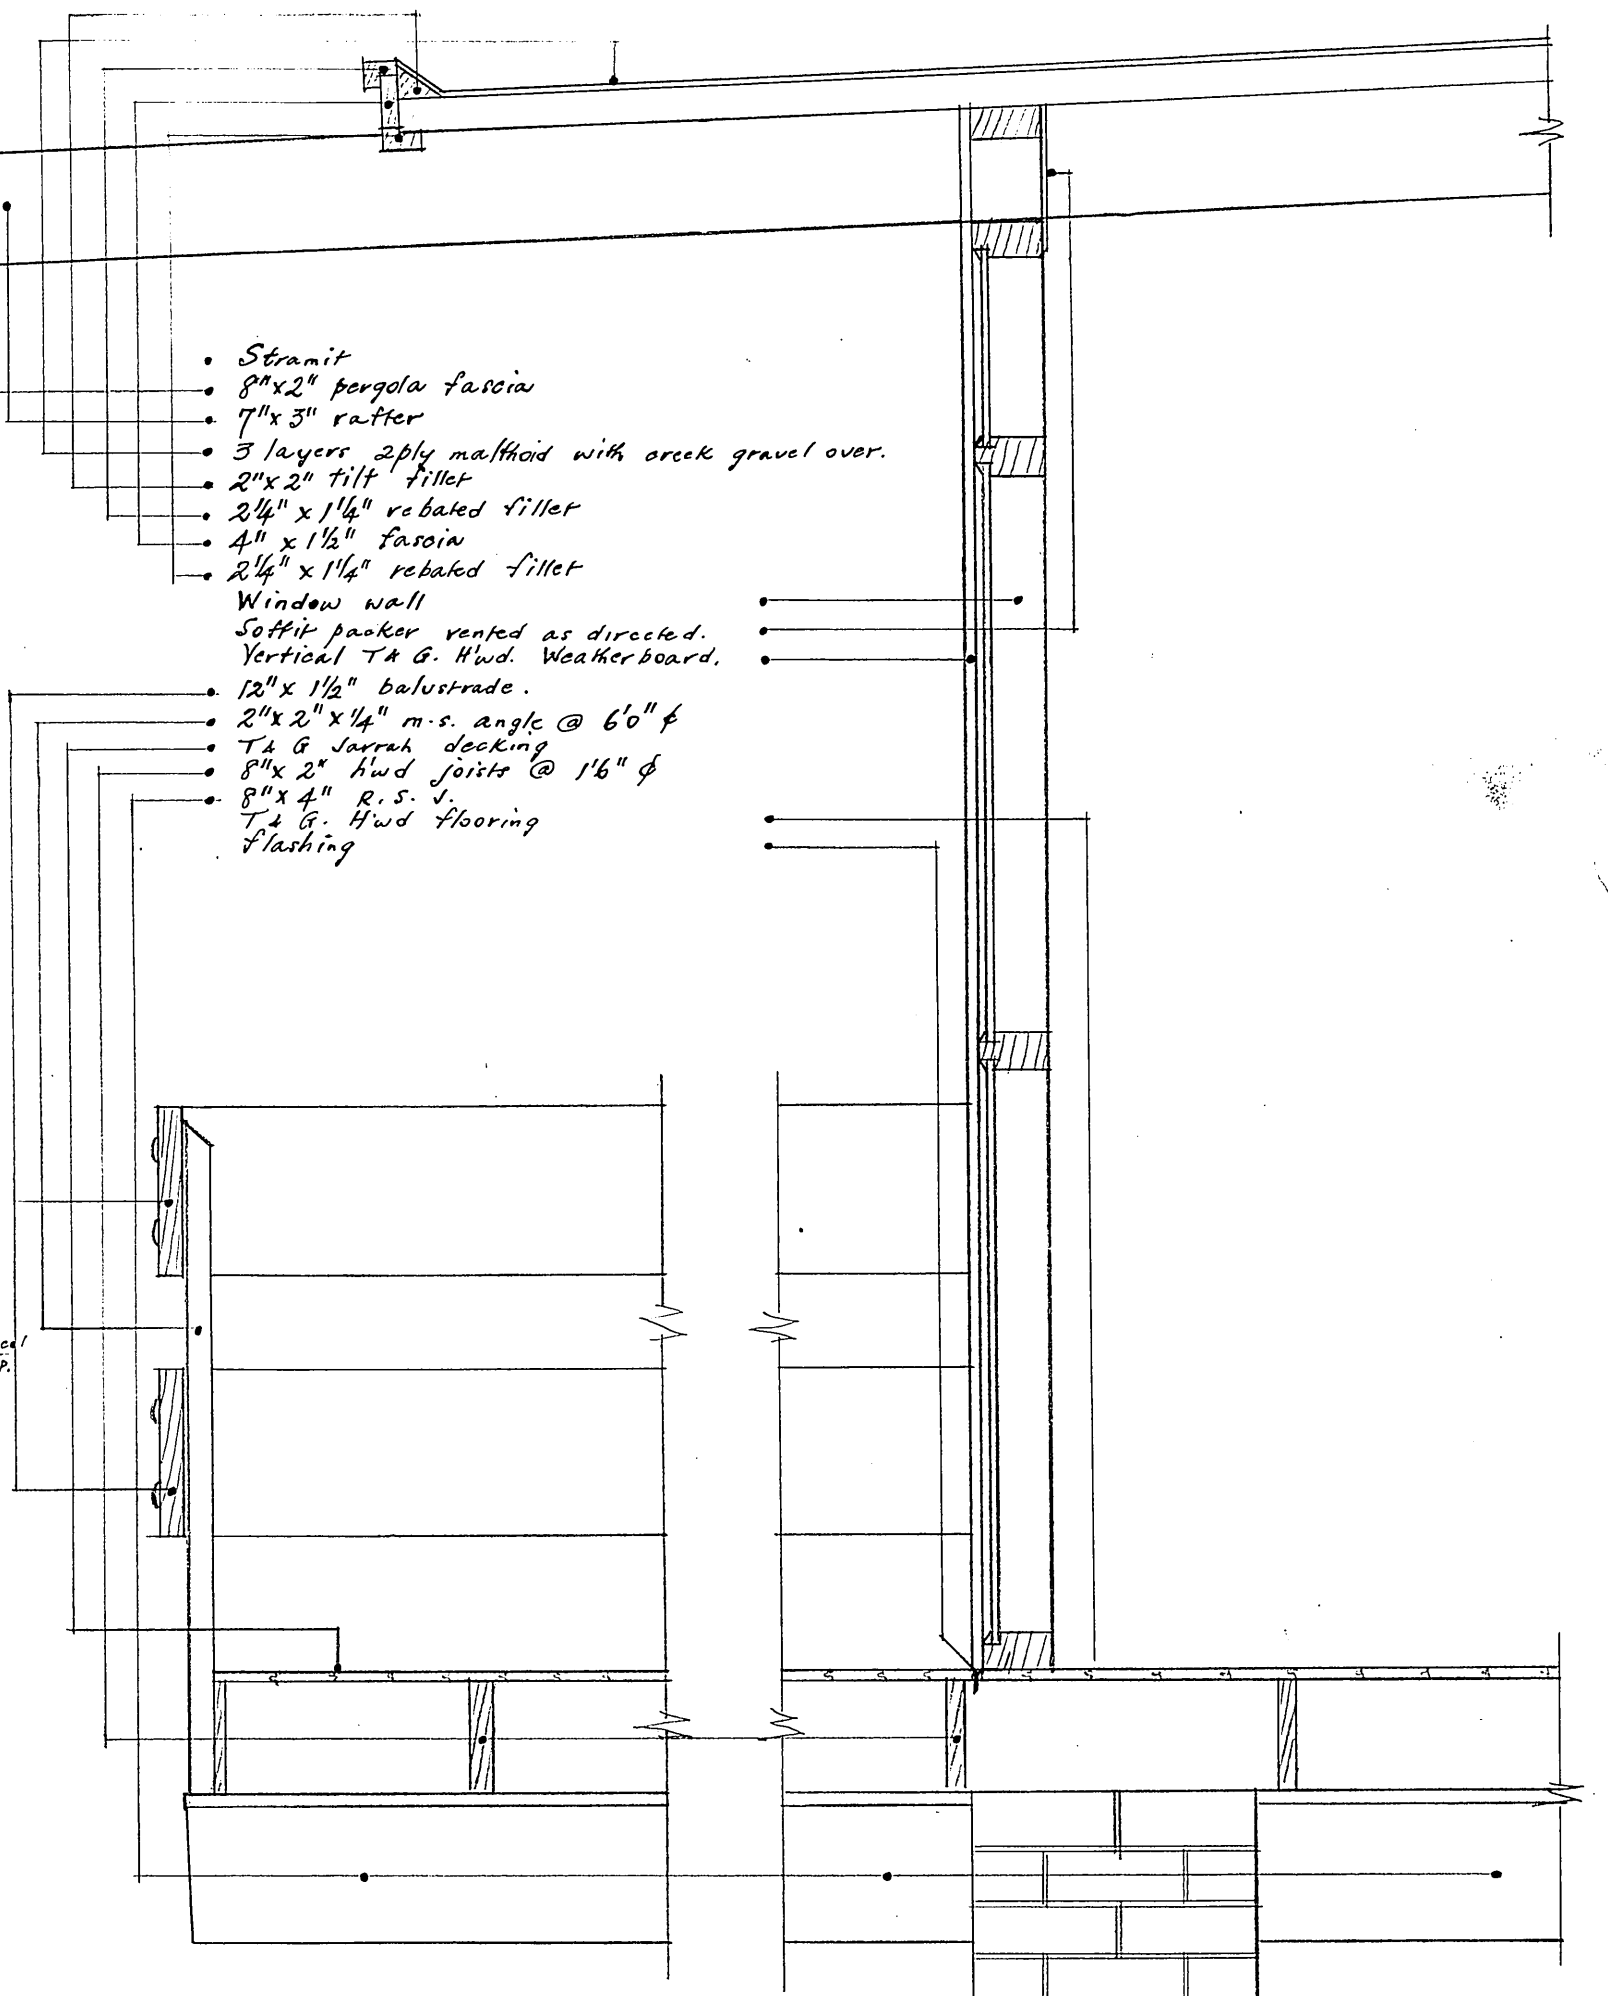 Stramit
8"x2" pergola fascia
7"x3" rafter
3 layers 2ply malthoid with creek gravel over.
2"x2" tilt fillet
2¼" x 1¼" rebated fillet
4" x 1½" fascia
2¼" x 1¼" rebated fillet
Window wall
Soffit packer vented as directed.
Vertical T & G. H'wd. Weatherboard.
12"x 1½" balustrade.
2"x2"x¼" m.s. angle @ 6'0" ¢
T & G Jarrah decking
8"x 2" h'wd joists @ 1'6" ¢
8"x 4" R.S.J.
T & G. H'wd flooring
flashing